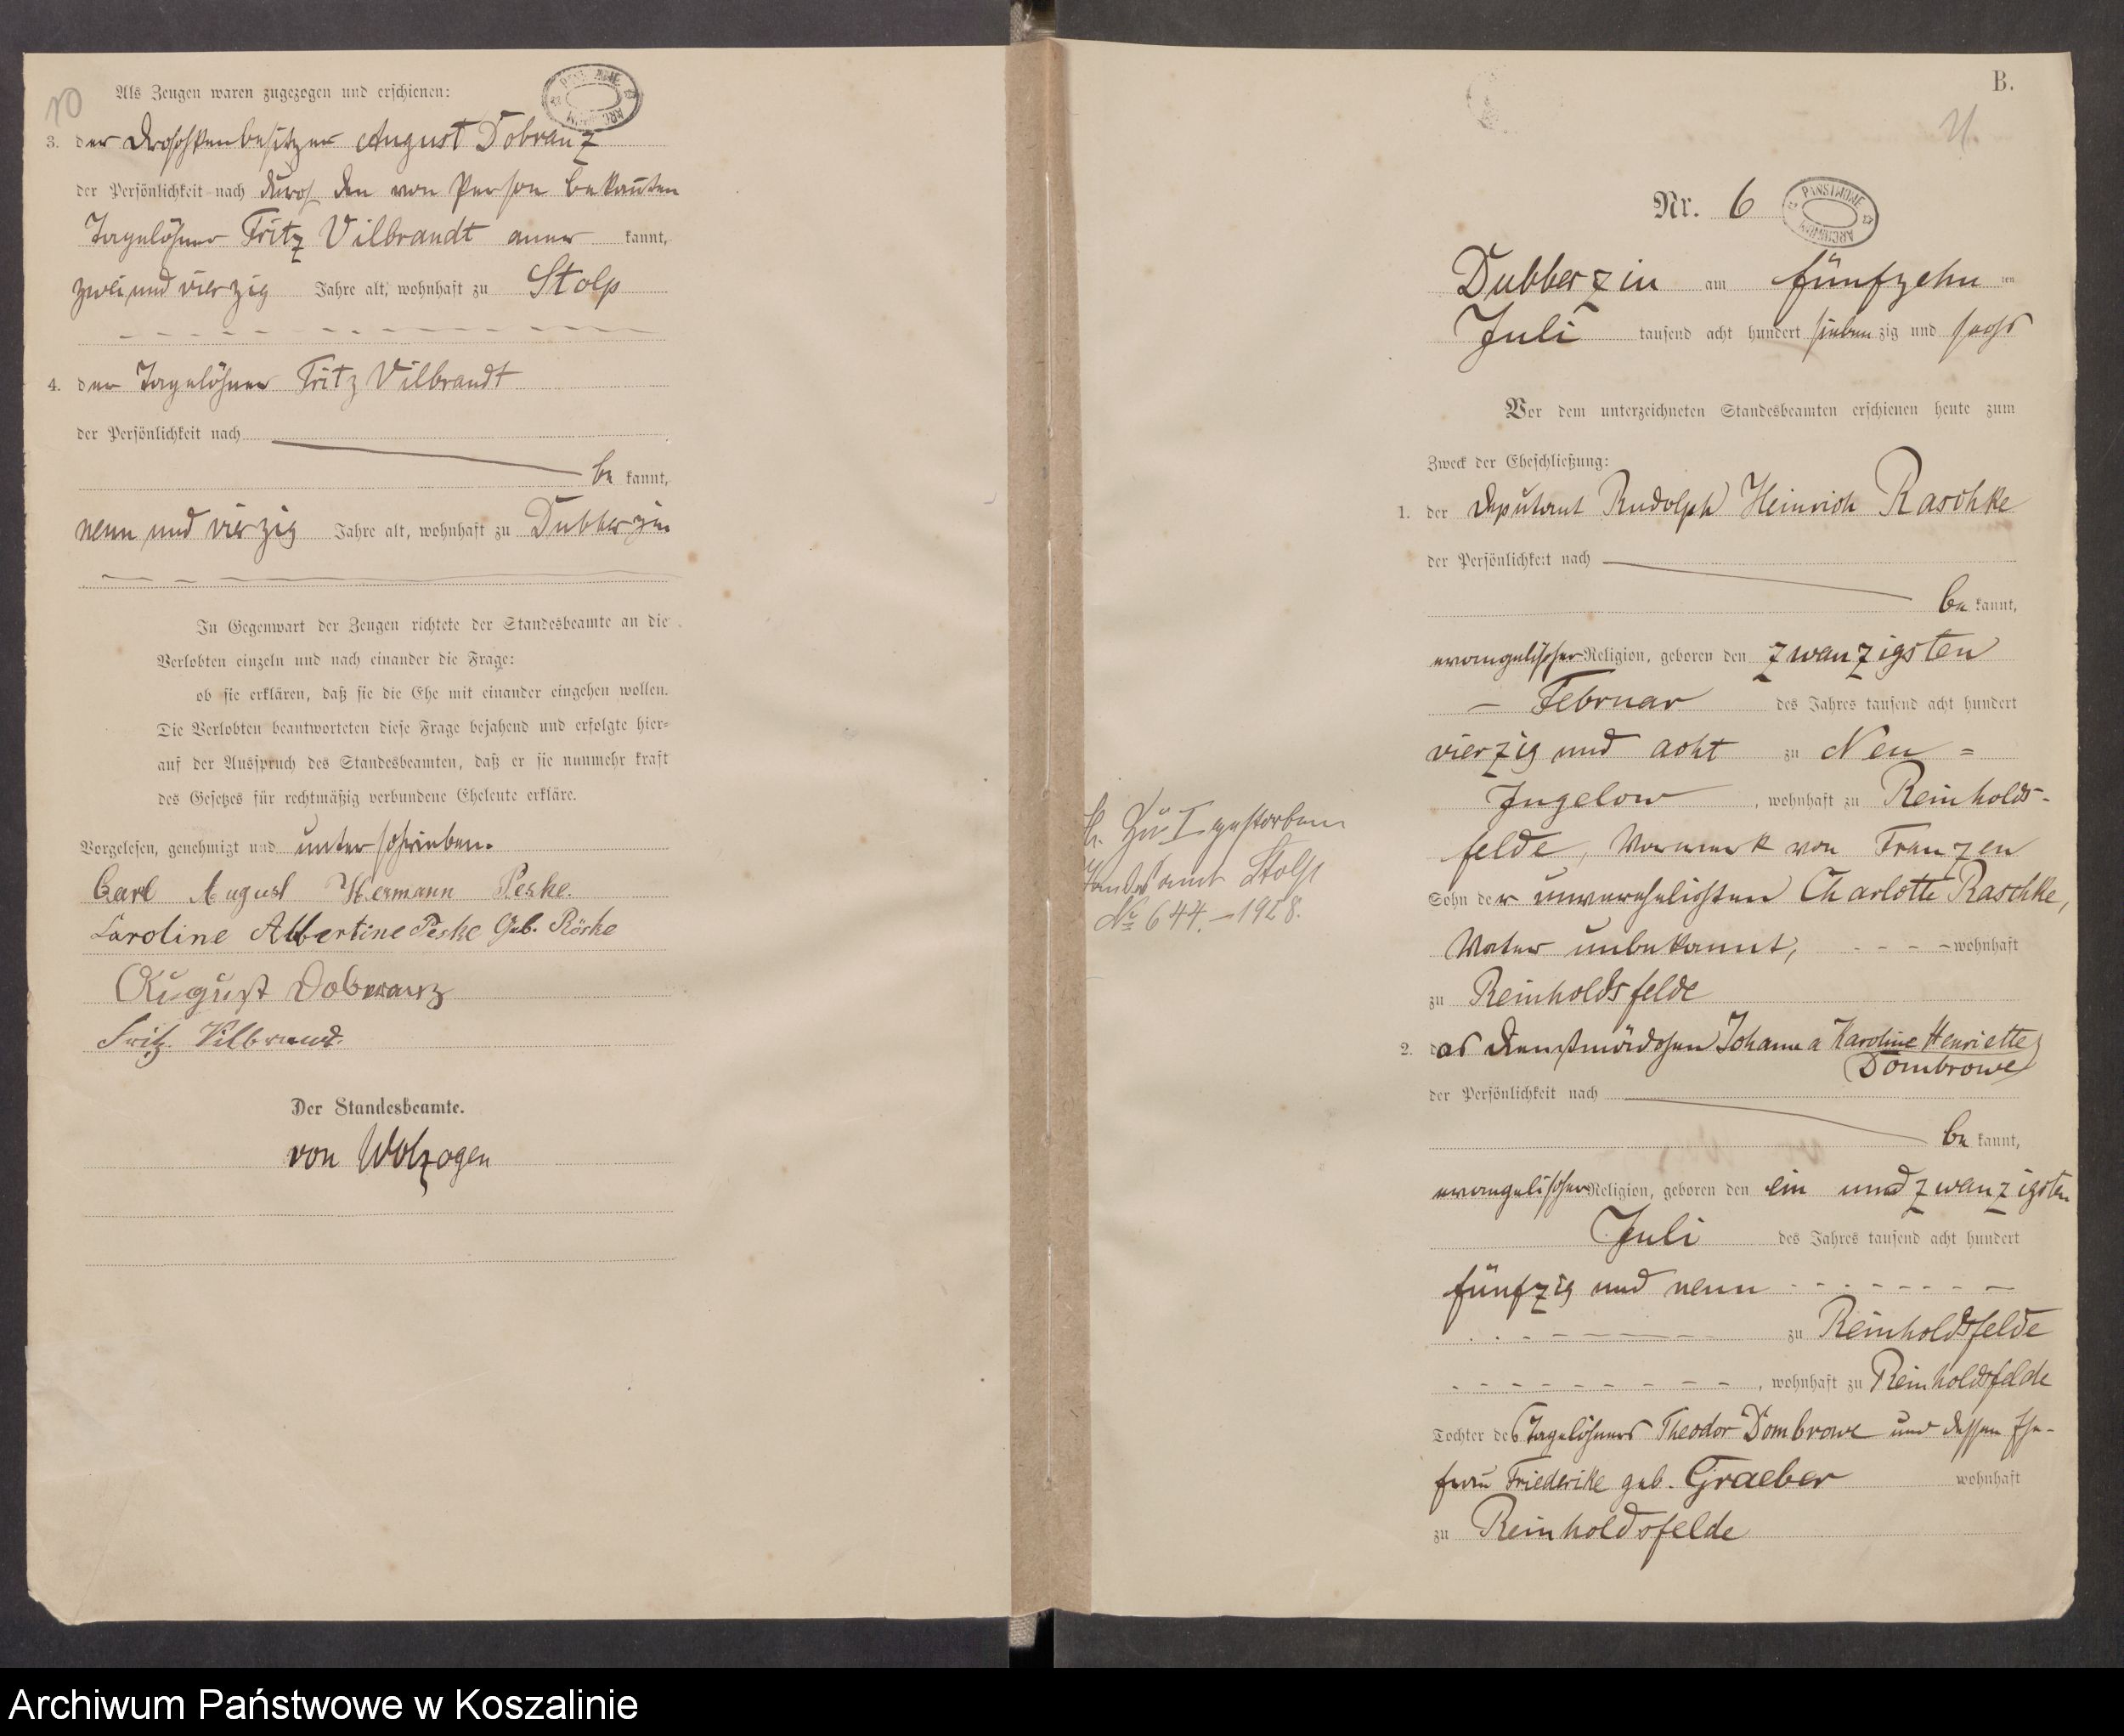 10
Als Zeugen waren zugezogen und erschienen:
3. der Droschkenbesitzer August Dobranz
der Persönlichkeit nach durch den von Person bekannten
Tagelöhner Fritz Vilbrandt aner kannt,
zwei und vierzig Jahre alt, wohnhaft zu Stolp
4. der Tagelöhner Fritz Vilbrandt
der Persönlichkeit nach
be kannt,
neun und vierzig Jahre alt, wohnhaft zu Dubberzin
In Gegenwart der Zeugen richtete der Standesbeamte an die
Verlobten einzeln und nach einander die Frage:
ob sie erklären, daß sie die Ehe mit einander eingehen wollen.
Die Verlobten beantworteten diese Frage bejahend und erfolgte hier=
auf der Ausspruch des Standesbeamten, daß er sie nunmehr kraft
des Gesetzes für rechtmäßig verbundene Eheleute erkläre.
Vorgelesen, genehmigt und unterschrieben.
Carl August Hermann Peske.
Caroline Albertine Peske Geb. Röske
August Dobranz
Fritz Vilbrandt.
Der Standesbeamte.
von Wolzogen
B.
11.
Nr. 6
PAŃSTWOWE ARCHIWUM
Dubberzin am fünfzehn ten
Juli tausend acht hundert sieben zig und sechs
Vor dem unterzeichneten Standesbeamten erschienen heute zum
Zweck der Eheschließung:
1. der Deputant Rudolph Heinrich Raschke
der Persönlichkeit nach
be kannt,
evangelischer Religion, geboren den zwanzigsten
– Februar des Jahres tausend acht hundert
vierzig und acht zu Neu =
Jugelow, wohnhaft zu Reinholds-
felde, Vorwerk von Franzen
Sohn der unverehelichten Charlotte Raschke,
Vater unbekannt, - - - - wohnhaft
zu Reinholdsfelde
2. das Dienstmädchen Johanna Karoline Henriette
Dombrowe
der Persönlichkeit nach
be kannt,
evangelischer Religion, geboren den ein und zwanzigsten
Juli des Jahres tausend acht hundert
fünfzig und neun - - - - - - - -
zu Reinholdsfelde
, wohnhaft zu Reinholdsfelde
Tochter des Tagelöhners Theodor Dombrowe und dessen Ehe-
frau Friederike geb. Graeber wohnhaft
zu Reinholdsfelde
Zu I gestorben
Standesamt Stolp
No 644. – 1928.
Archiwum Państwowe w Koszalinie